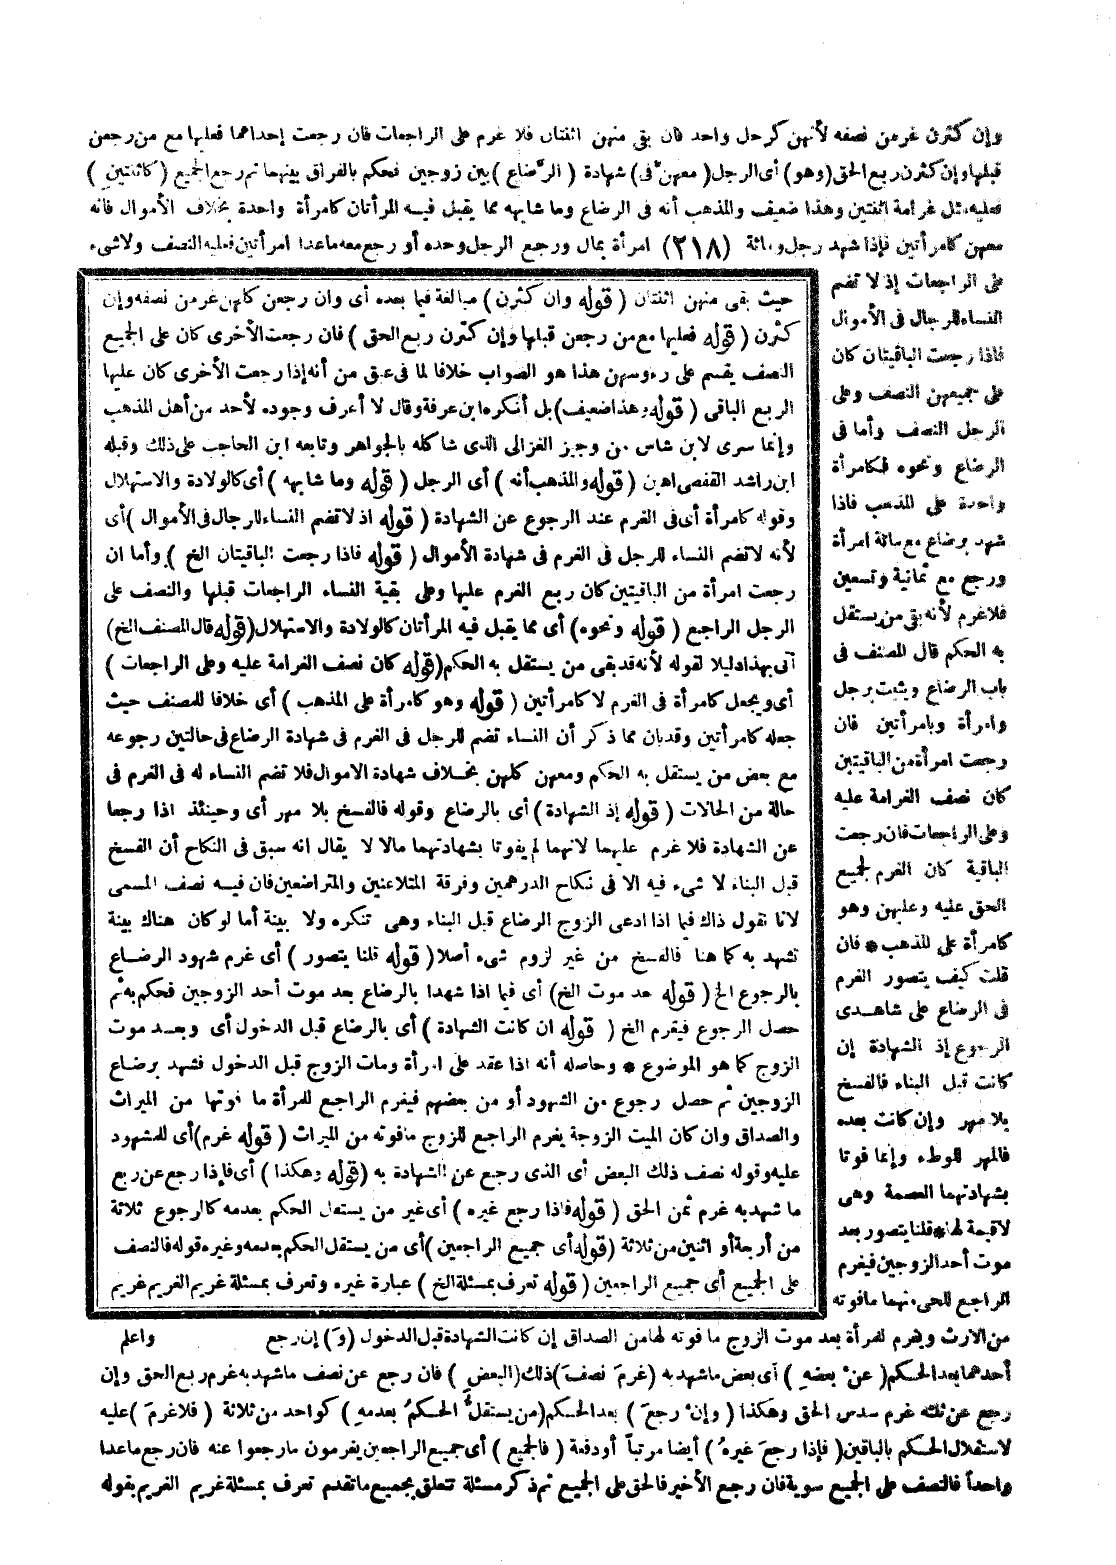 وإن كثرن غرمن نصفه لأنهن كرجل واحد فان بقى منهن اثنتان فلا غرم على الراجعات فان رجعت إحداهما فعليها مع من رجعن
قبلها وإن كثرن ربع الحق (وهو) أى الرجل (معهن فى) شهادة (الرضاع) بين زوجين فحكم بالفراق بينهما ثم رجع الجميع (كاثنتين)
فعليه مثل غرامة اثنتين وهذا ضعيف والمذهب أنه فى الرضاع وما شابهه مما يقبل فيه المرأتان كامرأة واحدة بخلاف الأموال فانه
معهن كامرأتين فإذا شهد رجل ومائة (٢١٨) امرأة بمال ورجع الرجل وحده أو رجع معه ماعدا امرأتين فعليه النصف ولاشىء
على الراجعات إذ لا تضم
النساء للرجال فى الأموال
فاذا رجعت الباقيتان كان
على جميعهن النصف وعلى
الرجل النصف وأما فى
الرضاع ونحوه فكامرأة
واحدة على المذهب فاذا
شهد برضاع مع مائة امرأة
ورجع مع ثمانية وتسعين
فلا غرم لأنه بقى من يستقل
به الحكم قال المصنف فى
باب الرضاع ويثبت برجل
وامرأة وبامرأتين فان
رجعت امرأة من الباقيتين
كان نصف الغرامة عليه
وعلى الراجعات فان رجعت
الباقية كان الغرم لجميع
الحق عليه وعليهن وهو
كامرأة على المذهب * فان
قلت كيف يتصور الغرم
فى الرضاع على شاهدى
الرجوع إذ الشهادة إن
كانت قبل البناء فالفسخ
بلا مهر وإن كانت بعده
فالمهر للوطء وإنما فوتا
بشهادتهما العصمة وهى
لا قيمة لها * قلنا يتصور بعد
موت أحد الزوجين فيغرم
الراجع للحى منهما مافوته
حيث بقى منهن اثنتان (قوله وان كثرن) مبالغة فيما بعده أى وان رجعن كلهن غرمن نصفه وإن
كثرن (قوله فعليها مع من رجعن قبلها وإن كثرن ربع الحق) فان رجعت الأخرى كان على الجميع
النصف يقسم على رءوسهن هذا هو الصواب خلافا لما فى عبق من أنه إذا رجعت الأخرى كان عليها
الربع الباقى (قوله وهذا ضعيف) بل أنكره ابن عرفة وقال لا أعرف وجوده لأحد من أهل المذهب
وإنما سرى لابن شاس من وجيز الغزالى الذى شاكله بالجواهر وتابعه ابن الحاجب على ذلك وقبله
ابن راشد القفصى اهبن (قوله والمذهب أنه) أى الرجل (قوله وما شابهه) أى كالولادة والاستهلال
وقوله كامرأة أى فى الغرم عند الرجوع عن الشهادة (قوله اذ لا تضم النساء للرجال فى الأموال) أى
لأنه لا تضم النساء للرجل فى الغرم فى شهادة الأموال (قوله فاذا رجعت الباقيتان الخ) وأما ان
رجعت امرأة من الباقيتين كان ربع الغرم عليها وعلى بقية النساء الراجعات قبلها والنصف على
الرجل الراجع (قوله ونحوه) أى مما يقبل فيه المرأتان كالولادة والاستهلال (قوله قال المصنف الخ)
أتى بهذا دليلا لقوله لأنه قد بقى من يستقل به الحكم (قوله كان نصف الغرامة عليه وعلى الراجعات)
أى ويجعل كامرأة فى الغرم لا كامرأتين (قوله وهو كامرأة على المذهب) أى خلافا للمصنف حيث
جعله كامرأتين وقد بان مما ذكر أن النساء تضم للرجل فى الغرم فى شهادة الرضاع فى حالتين رجوعه
مع بعض من يستقل به الحكم ومعهن كلهن بخلاف شهادة الاموال فلا تضم النساء له فى الغرم فى
حالة من الحالات (قوله إذ الشهادة) أى بالرضاع وقوله فالفسخ بلا مهر أى وحينئذ اذا رجعا
عن الشهادة فلا غرم عليهما لانهما لم يفوتا بشهادتهما مالا لا يقال انه سبق فى النكاح أن الفسخ
قبل البناء لا شىء فيه الا فى نكاح الدرهمين وفرقة المتلاعنين والمتراضعين فان فيه نصف المسمى
لانا نقول ذاك فيما اذا ادعى الزوج الرضاع قبل البناء وهى تنكره ولا بينة أما لو كان هناك بينة
تشهد به كما هنا فالفسخ من غير لزوم شىء أصلا (قوله قلنا يتصور) أى غرم شهود الرضاع
بالرجوع الخ (قوله بعد موت الخ) أى فيما اذا شهدا بالرضاع بعد موت أحد الزوجين فحكم به ثم
حصل الرجوع فيغرم الخ (قوله ان كانت الشهادة) أى بالرضاع قبل الدخول أى وبعد موت
الزوج كما هو الموضوع * وحاصله أنه اذا عقد على امرأة ومات الزوج قبل الدخول فشهد برضاع
الزوجين ثم حصل رجوع من الشهود أو من بعضهم فيغرم الراجع للمرأة ما فوتها من الميراث
والصداق وان كان الميت الزوجة يغرم الراجع للزوج مافوته من الميراث (قوله غرم) أى للمشهود
عليه وقوله نصف ذلك البعض أى الذى رجع عن الشهادة به (قوله وهكذا) أى فإذا رجع عن ربع
ما شهد به غرم ثمن الحق (قوله فاذا رجع غيره) أى غير من يستقل الحكم بعدمه كالرجوع ثلاثة
من أربعة أو اثنين من ثلاثة (قوله أى جميع الراجعين) أى من يستقل الحكم بعدمه وغيره قوله فالنصف
على الجميع أى جميع الراجعين (قوله تعرف بمسئلة الخ) عبارة غيره وتعرف بمسئلة غريم الغريم غريم
من الارث ويغرم للمرأة بعد موت الزوج ما فوته لها من الصداق إن كانت الشهادة قبل الدخول (و) إن رجع واعلم
أحدهما بعد الحكم (عن بعضه) أى بعض ماشهد به (غرم نصف) ذلك (البعض) فان رجع عن نصف ماشهد به غرم ربع الحق وإن
رجع عن ثلثه غرم سدس الحق وهكذا (وإن رجع) بعد الحكم (من يستقل الحكم بعدمه) كواحد من ثلاثة (فلا غرم) عليه
لاستقلال الحكم بالباقين (فإذا رجع غيره) أيضا مرتبا أو دفعة (فالجميع) أى جميع الراجعين يغرمون مارجعوا عنه فان رجع ماعدا
واحداً فالنصف على الجميع سوية فان رجع الأخير فالحق على الجميع ثم ذكر مسئلة تتعلق بجميع ماتقدم تعرف بمسئلة غريم الغريم بقوله